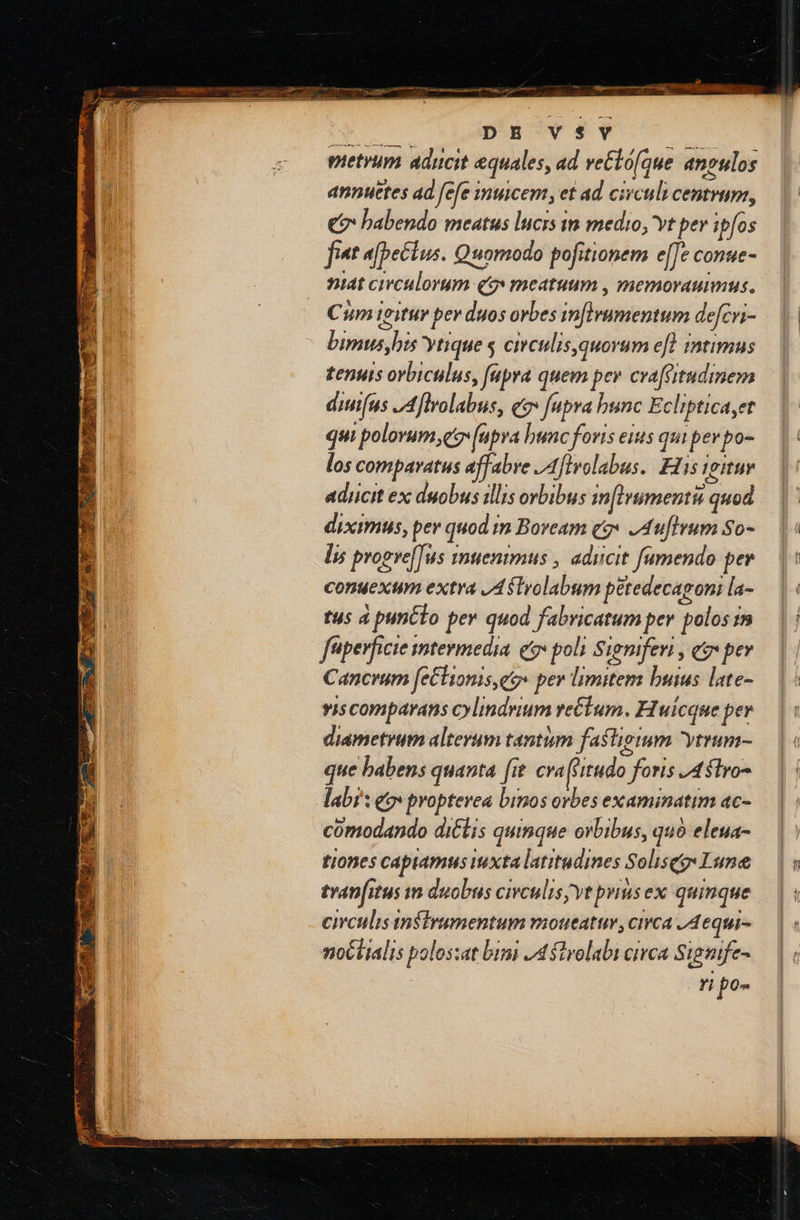 DE VSV
metrum adiicit æquales, ad rectósque angulos
annuẽtes ad sese inuicem, et ad circuli centrum,
& habendo meatus lucis in medio, vt per ipsos
fiat aspectus. Quomodo positionem esse conue-
niat circulorum & meatuum, memorauimus.
Cùm igitur per duos orbes instrumentum descri-
bimus, his vtique 5 circulis, quorum est intimus
tenuis orbiculus, supra quem per crassitudinem
diuisus Astrolabus, & supra hunc Ecliptica, et
qui polorum, & supra hunc foris eius qui per po-
los comparatus affabre Astrolabus. His igitur
adiicit ex duobus illis orbibus instrumentũ quod
diximus, per quod in Boream & Austrum So-
lis progressus inuenimus, adiicit sumendo per
conuexum extra Astrolabum pẽtedecagoni la-
tus à puncto per quod fabricatum per polos in
superficie intermedia & poli Signiferi, & per
Cancrum sectionis, & per limitem huius late-
ris comparans cylindrium rectum. Huicque per
diametrum alterum tantùm fastigium vtrum-
que habens quanta sit crassitudo foris Astro-
labi: & propterea binos orbes examinatim ac-
cõmodando dictis quinque orbibus, quò eleua-
tiones capiamus iuxta latitudines Solis & Lunæ
transitus in duobus circulis, vt priùs ex quinque
circulis instrumentum moueatur, circa Aequi-
noctialis polos: at bini Astrolabi circa Signife-
ri po-